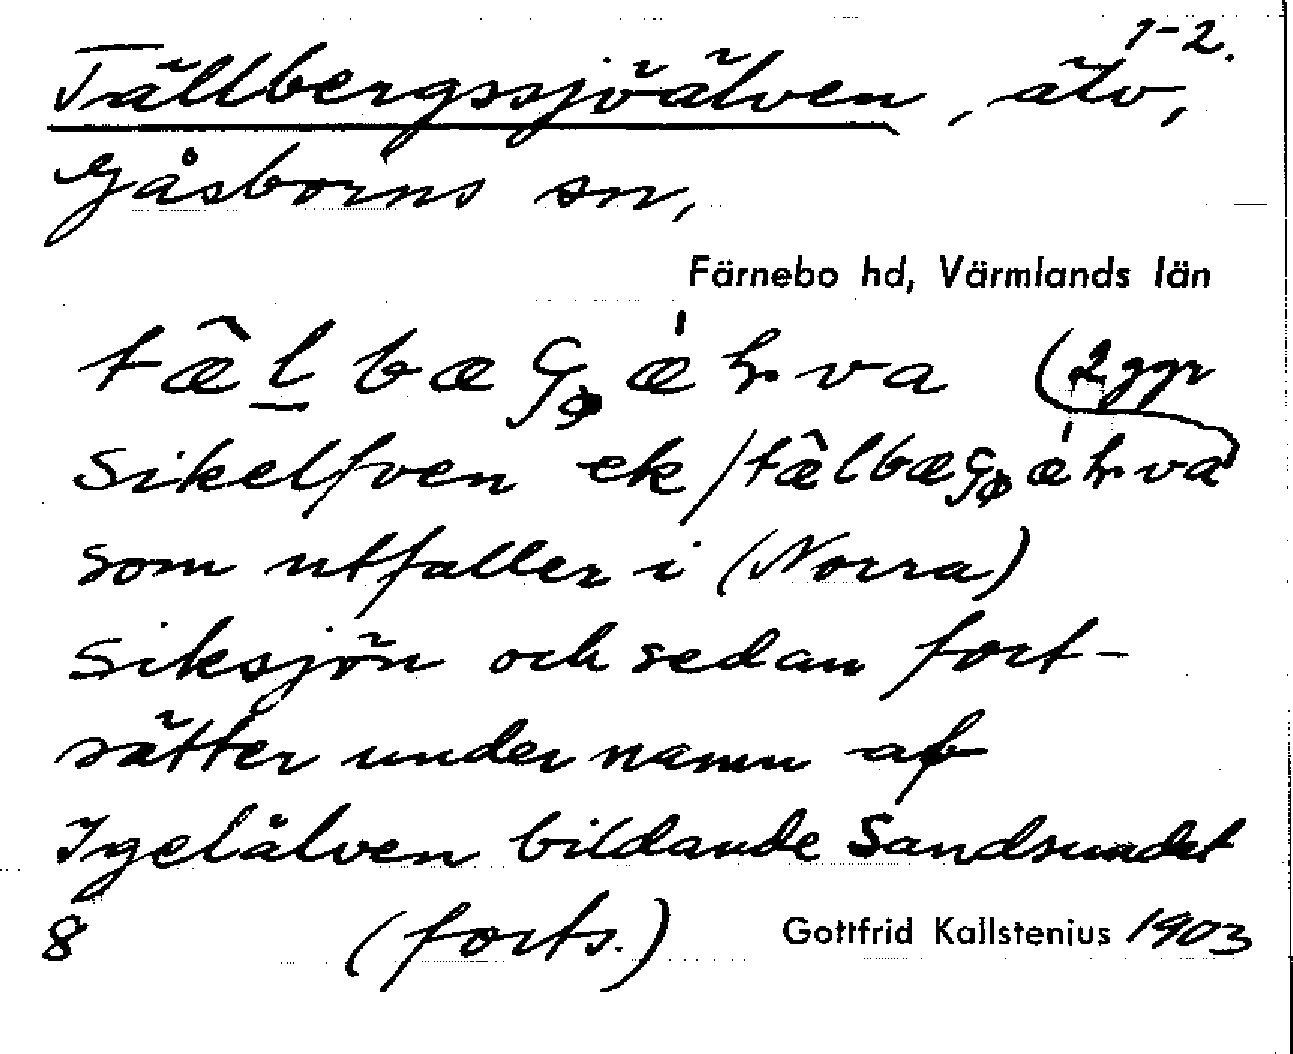 1-2.
Tällbergssjöälven, älv,
Gåsborns sn,
Färnebo hd, Värmlands län
(2 ggr
Sikelfven ek/
som utfaller i (Norra)
Siksjön och sedan fort-
sätter under namn af
Igelälven bildande Sandsundet
8 (forts.) Gottfrid Kallstenius 1903